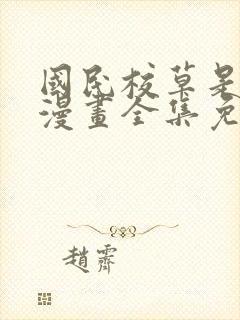 國民校草是
漫畫全集免
趙霽